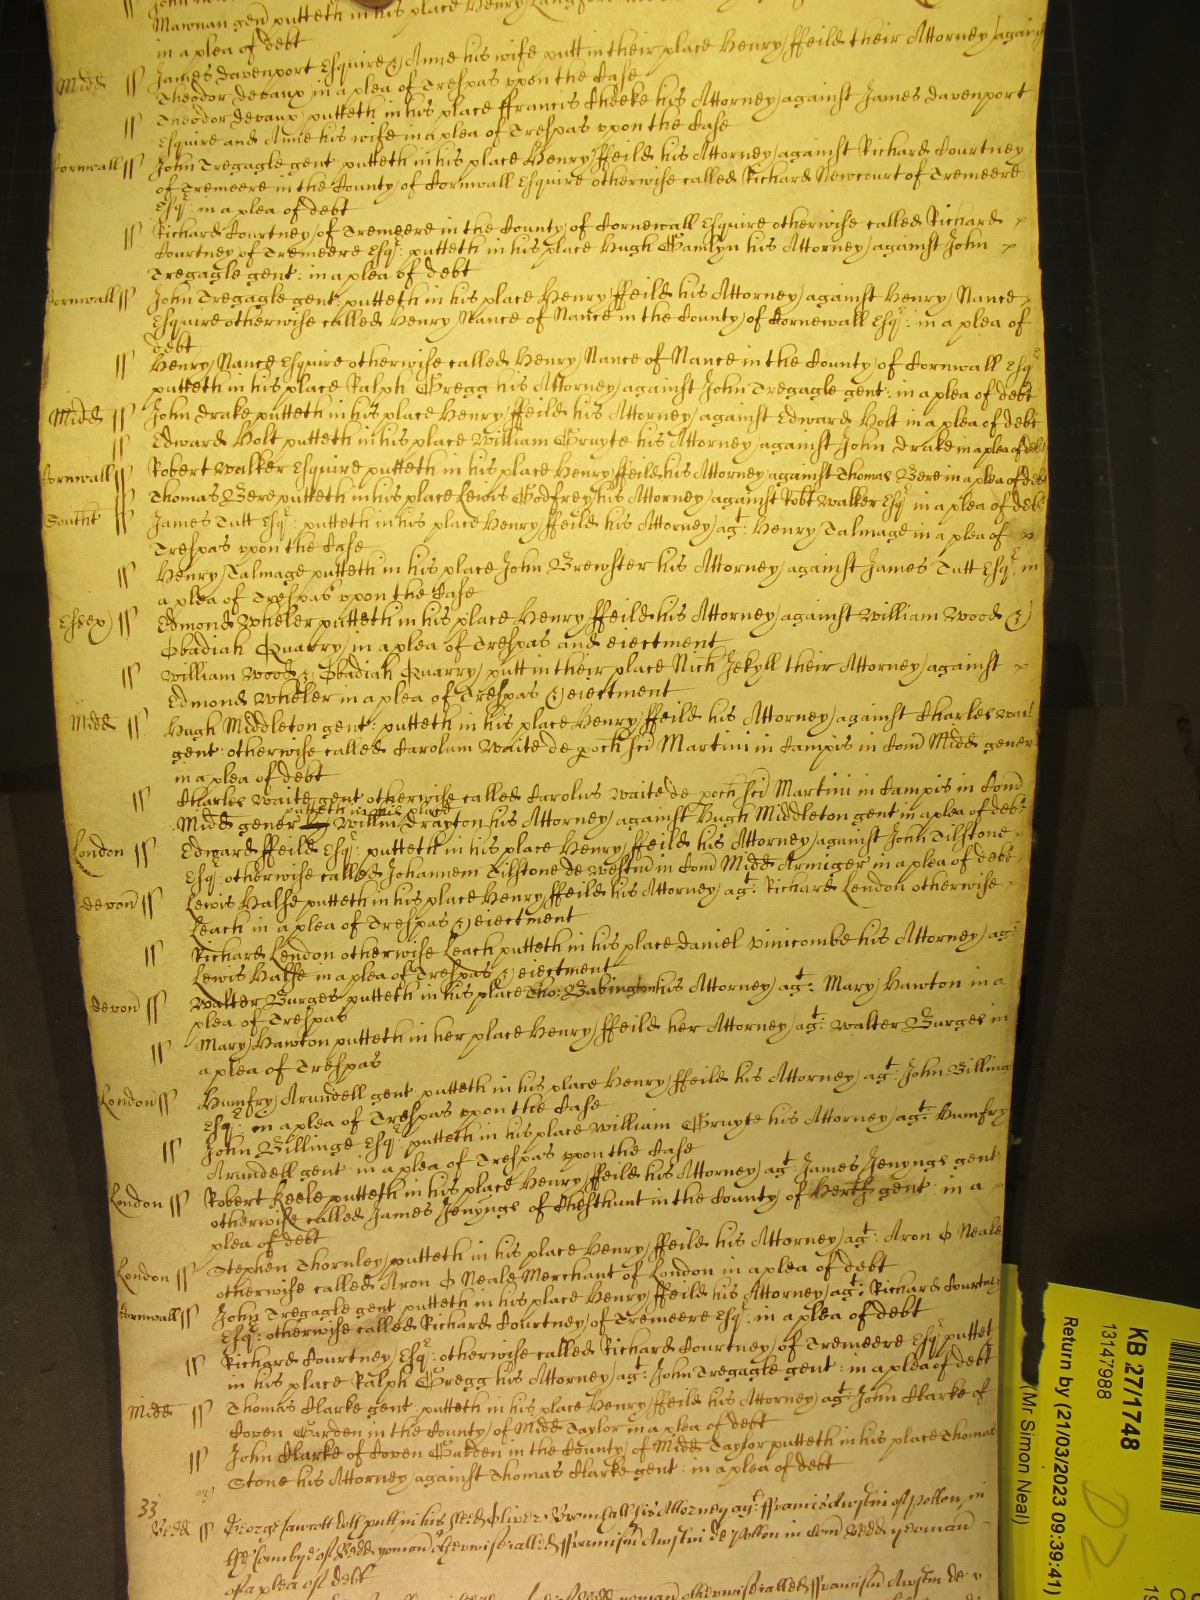 Mawnan gen putteth in his place Henry
in a plea of debt
Midd ss James Davenport Esquire & Anne his wife putt in their place Henry ffeild their Attorney again
Theodor Devaux in a plea of Trespas vpon the Case
ss Theodor Devaux putteth in his place ffrancis Cheeke his Attorney against James Davenport
Esquire and Anne his wife in a plea of Trespas vpon the Case
Cornwall ss John Tregagle gent putteth in his place Henry ffeild his Attorney against Richard Courtney
of Tremeere in the County of Cornwall Esquire otherwise called Richard Newcourt of Tremeere
Esqr: in a plea of debt
ss Richard Courtney of Tremeere in the County of Cornewall Esquire otherwise called Richard
Courtney of Tremeere Esqr: putteth in his place Hugh Gamlyn his Attorney against John
Tregagle gent: in a plea of debt
Cornwall ss John Tregagle gent: putteth in his place Henry ffeild his Attorney against Henry Nance
Esquire otherwise called Henry Nance of Nance in the County of Cornewall Esqr: in a plea of
debt
ss Henry Nance Esquire otherwise called Henry Nance of Nance in the County of Cornwall Esqr
putteth in his place Ralph Gregg his Attorney against John Tregagle gent: in a plea of debt
Midd ss John Drake putteth in his place Henry ffeild his Attorney against Edward Holt in a plea of debt
ss Edward Holt putteth in his place William Gruyte his Attorney against John Drake in a plea of debt
Cornwall ss Robert Walker Esquire putteth in his place Henry ffeild his Attorney against Thomas Bere in a plea of debt
ss Thomas Bere putteth in his place Lewis Godfrey his Attorney against Robt Walker Esqr in a plea of debt
Southt ss James Tutt Esqr: putteth in his place Henry ffeild his Attorney agt: Henry Talmage in a plea of
Trespas vpon the Case
ss Henry Talmage putteth in his place John Brewster his Attorney against James Tutt Esqr: in
a plea of Trespas vpon the Case
Essex ss Edmond Wheler putteth in his place Henry ffeild his Attorney against William Wood &
Obadiah Quarry in a plea of Trespas and eiectment
ss William Wood & Obadiah Quarry putt in their place Nich Jekyll their Attorney against
Edmond Wheler in a plea of Trespas & eiectment
Midd ss Hugh Middleton gent: putteth in his place Henry ffeild his Attorney against Charles Wait
gent: otherwise called Carolum Waite de poch Sci Martini in Campis in Com Midd gener
in a plea of debt
ss Charles Waite gent otherwise called Carolus Waite de poch Sci Martini in Campis in Com
putteth in his place
Midd gener by Willm Drayton his Attorney against Hugh Middleton gent in a plea of debt
London ss Edward ffeild Esqr: putteth in his place Henry ffeild his Attorney against John Tilstone
Esqr: otherwise called Johannem Tilstone de Westm in Com Midd Armiger in a plea of debt
Devon ss Lewis Halse putteth in his place Henry ffeild his Attorney agt: Richard London otherwise
Leach in a plea of Trespas & eiectment
ss Richard London otherwise Leach putteth in his place Daniel Vinicombe his Attorney agt
Lewis Halse in a plea of Trespas & eiectment
Devon ss Walter Burges putteth in his place Tho: Babington his Attorney agt: Mary Hawton in a
plea of Trespas
ss Mary Hawton putteth in her place Henry ffeild her Attorney agt: Walter Burges in
a plea of Trespas
London ss Humfry Arundell gent putteth in his place Henry ffeild his Attorney agt: John Billing
Esqr: in a plea of Trespas vpon the Case
ss John Billinge Esqr: putteth in his place William Gruyte his Attorney agt: Humfry
Arundell gent: in a plea of Trespas vpon the Case
London ss Robert Keele putteth in his place Henry ffeild his Attorney agt: James Jenynge gent
otherwise called James Jenynge of Chesthunt in the County of Hertf gent: in a
plea of debt
London ss Stephen Thornley putteth in his place Henry ffeild his Attorney agt: Aron O Neale
otherwise called Aron O Neale Merchant of London in a plea of debt
Cornwall ss John Tregagle gent: putteth in his place Henry ffeild his Attorney agt: Richard Courtney
Esqr: otherwise called Richard Courtney of Tremeere Esqr: in a plea of debt
ss Richard Courtney Esqr: otherwise called Richard Courtney of Tremeere Esqr puttet
in his place Ralph Gregg his Attorney agt: John Tregagle gent: in a plea of debt
Midd ss Thomas Clarke gent: putteth in his place Henry ffeild his Attorney agt: John Clarke of
Coven Garden in the County of Midd Taylor in a plea of debt
ss John Clarke of Coven Garden in the County of Midd Taylor putteth in his place Thomas
Stone his Attorney against Thomas Clarke gent: in a plea of debt
33
Bedd ss George fawcott doth putt in his sted Oliver Bromsall his Attorney agt: ffrancis Awstin of Potton in
the County of Bedd yoman otherwise called ffranciscu Awstin de Potton in Com Bedd yeoman
of a plea of debt
yoman otherwise called ffranciscu Awstin de
KB 27/1748
13147988
Return by (21/03/2023 09:39:41)
(Mr Simon Neal)
D2